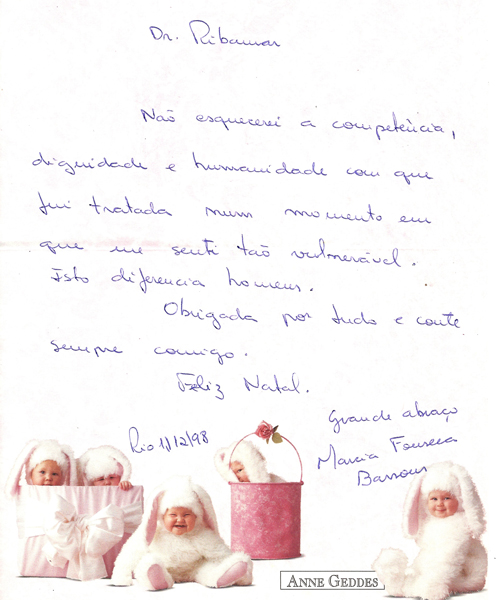 Dr. Ribamar
Não esquecerei a competência,
dignidade e humanidade com que
fui tratada num momento em
que me senti tão vulnerável.
Isto diferencia homens.
Obrigada por tudo e conte
sempre comigo.
Feliz Natal.
Grande abraço
Rio 11/12/98
Marcia Fonseca
ANNE GEDDES